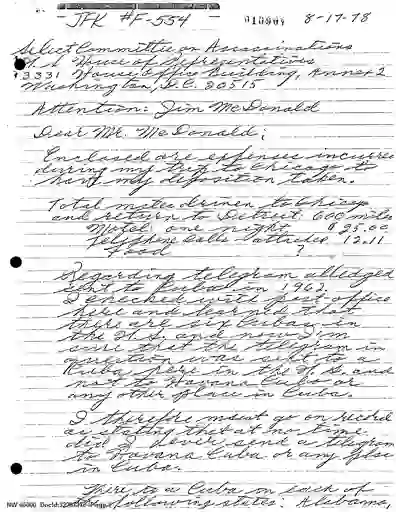 JFK #F-554 010908 8-17-78
Select Committee on Assassinations
U.S. House of Representatives
3331 House Office Building, Annex 2
Washington, D.C. 20515
Attention: Jim McDonald
Dear Mr. McDonald;
Enclosed are expenses incurred
during my trip to Chicago to
have my deposition taken.
Total miles driven to Chicago
and return to Detroit 600 miles
Motel one night $25.00
Telephone Calls - attached 12.11
Food ?
Regarding telegram alledged
sent to Cuba in 1962.
I checked with post-office
here and learned that
there are six Cubas in
the U.S. and now I'm
sure that the telegram in
question was sent to a
Cuba here in the U.S. and
not to Havana Cuba or
any other place in Cuba.
I therefore must go on record
as stating that at no time
did I ever send a telegram
to Havana Cuba or any place
in Cuba.
There is a Cuba in each of
the following states: Alabama,